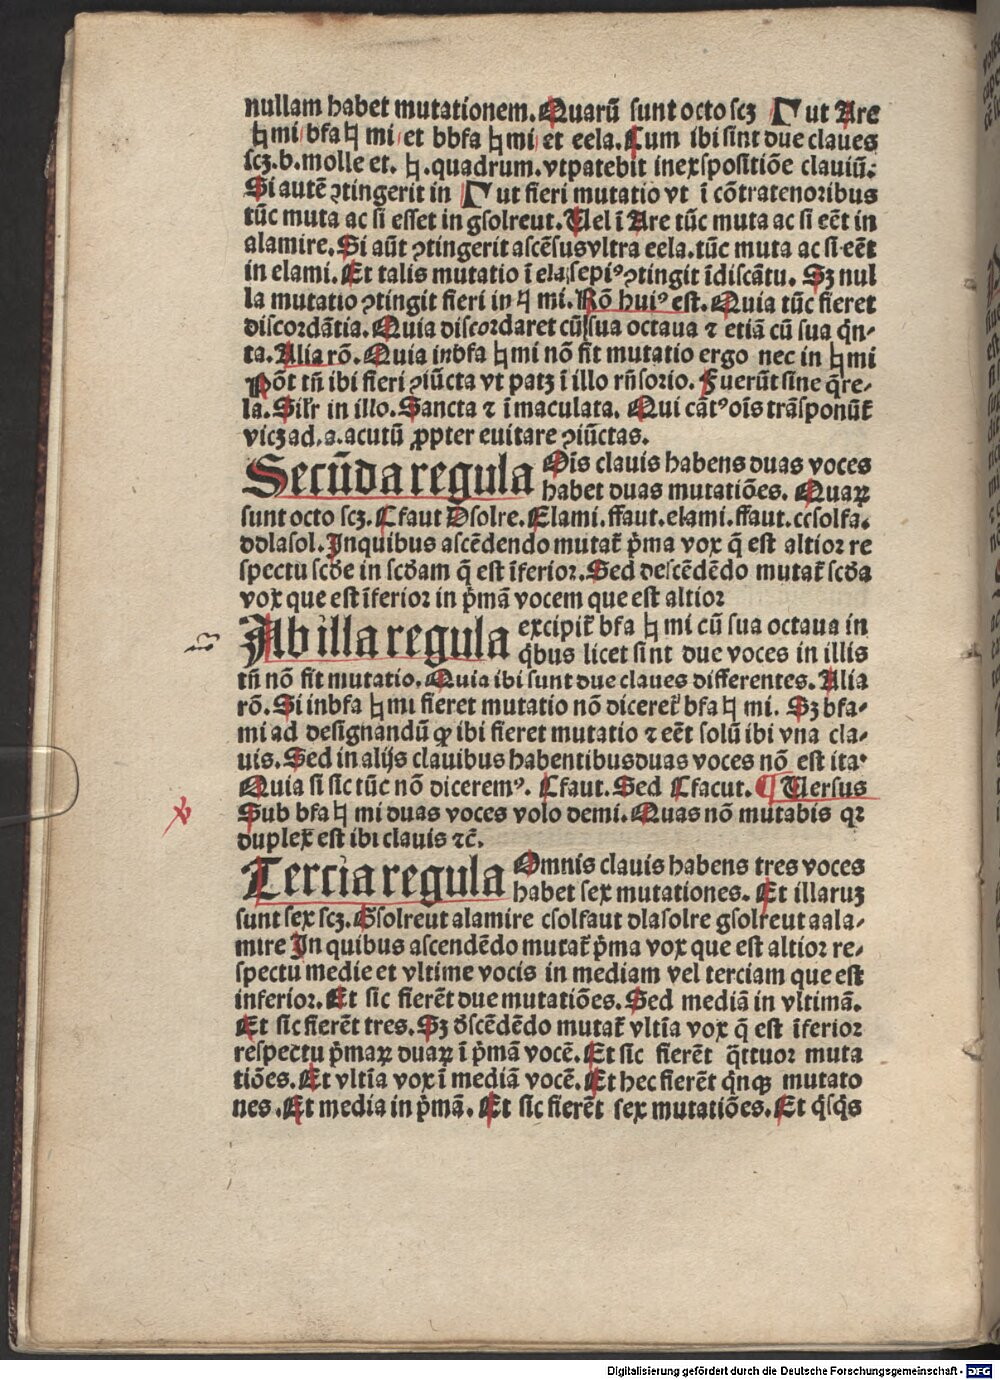 nullam habet mutationem. Quarū sunt octo scꝫ Γ ut Are
♮ mi bfa ♮ mi et bbfa ♮ mi et eela. Cum ibi sint due claues
scꝫ. b. molle et. ♮ .quadrum. vt patebit in exspositiōe clauiū.
Si autē ꝯtingerit in Γ ut fieri mutatio vt ī cōtratenoribus
tūc muta ac si esset in gsolreut. Uel ī Are tūc muta ac si eēt in
alamire. Si aūt ꝯtingerit ascēsus vltra eela. tūc muta ac si eēt
in elami. Et talis mutatio ī ela sepiꝰ ꝯtingit ī discātu. Sꝫ nul
la mutatio ꝯtingit fieri in ♮ mi. Rō huiꝰ est. Quia tūc fieret
discordātia. Quia discordaret cū sua octaua ⁊ etiā cū sua q̄n-
ta. Alia rō. Quia in bfa ♮ mi nō fit mutatio ergo nec in ♮ mi
Pōt tn̄ ibi fieri ꝯiūcta vt patꝫ ī illo rn̄sorio. Fuerūt sine q̄re-
la. Silr̄ in illo. Sancta ⁊ īmaculata. Qui cātꝰ oīs trāsponūt̄
vicꝫ ad .a. acutū ꝓpter euitare ꝯiūctas.
Secūda regula Oīs clauis habens duas voces
habet duas mutatiōes. Quaꝝ
sunt octo scꝫ. Cfaut Dsolre. Elami. ffaut. elami. ffaut. ccsolfa.
ddlasol. In quibus ascēdendo mutat̄ p̄ma vox q̄ est altior re
spectu scd̄e in scd̄am q̄ est īferior. Sed descēdēdo mutat̄ scd̄a
vox que est īferior in p̄mā vocem que est altior
Ab illa regula excipit̄ bfa ♮ mi cū sua octaua in
q̄bus licet sint due voces in illis
tn̄ nō fit mutatio. Quia ibi sunt due claues differentes. Alia
rō. Si in bfa ♮ mi fieret mutatio nō diceret̄ bfa ♮ mi. Sꝫ bfa-
mi ad designandū ꝙ ibi fieret mutatio ⁊ eēt solū ibi vna cla-
uis. Sed in alijs clauibus habentibus duas voces nō est ita.
Quia si sic tūc nō diceremꝰ. Cfaut. Sed Cfacut. ¶ Uersus
Sub bfa ♮ mi duas voces volo demi. Quas nō mutabis qꝛ
duplex̄ est ibi clauis ⁊c̄.
Tercia regula Omnis clauis habens tres voces
habet sex mutationes. Et illaruꝫ
sunt sex scꝫ. Gsolreut alamire csolfaut dlasolre gsolreut aala-
mire In quibus ascendēdo mutat̄ p̄ma vox que est altior re-
spectu medie et vltime vocis in mediam vel terciam que est
inferior. Et sic fierēt due mutatiōes. Sed mediā in vltimā.
Et sic fierēt tres. Sꝫ d̄scēdēdo mutat̄ vltīa vox q̄ est īferior
respectu p̄maꝝ duaꝝ ī p̄mā vocē. Et sic fierēt q̄ttuor muta
tiōes. Et vltīa vox ī mediā vocē. Et hec fierēt q̄nqꝫ mutato
nes. Et media in p̄mā. Et sic fierēt sex mutatiōes. Et q̄sq̄s
Digitalisierung gefördert durch die Deutsche Forschungsgemeinschaft - DFG